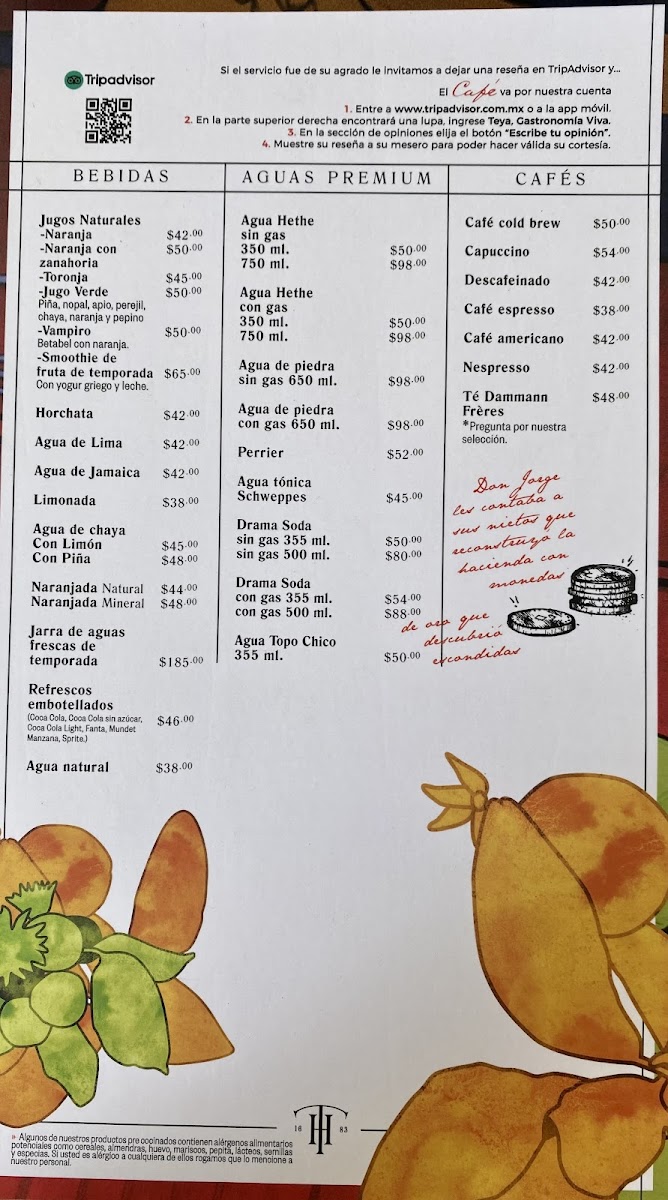 Tripadvisor
Si el servicio fue de su agrado le invitamos a dejar una reseña en TripAdvisor y...
El Café va por nuestra cuenta
1. Entre a www.tripadvisor.com.mx o a la app móvil.
2. En la parte superior derecha encontrará una lupa, ingrese Teya, Gastronomía Viva.
3. En la sección de opiniones elija el botón "Escribe tu opinión".
4. Muestre su reseña a su mesero para poder hacer válida su cortesía.
BEBIDAS
Jugos Naturales
-Naranja $42.00
-Naranja con $50.00
zanahoria
-Toronja $45.00
-Jugo Verde $50.00
Piña, nopal, apio, perejil,
chaya, naranja y pepino
-Vampiro $50.00
Betabel con naranja.
-Smoothie de
fruta de temporada $65.00
Con yogur griego y leche.
Horchata $42.00
Agua de Lima $42.00
Agua de Jamaica $42.00
Limonada $38.00
Agua de chaya
Con Limón $45.00
Con Piña $48.00
Naranjada Natural $44.00
Naranjada Mineral $48.00
Jarra de aguas
frescas de
temporada $185.00
Refrescos
embotellados
(Coca Cola, Coca Cola sin azúcar, $46.00
Coca Cola Light, Fanta, Mundet
Manzana, Sprite.)
Agua natural $38.00
AGUAS PREMIUM
Agua Hethe
sin gas
350 ml. $50.00
750 ml. $98.00
Agua Hethe
con gas
350 ml. $50.00
750 ml. $98.00
Agua de piedra
sin gas 650 ml. $98.00
Agua de piedra
con gas 650 ml. $98.00
Perrier $52.00
Agua tónica
Schweppes $45.00
Drama Soda
sin gas 355 ml. $50.00
sin gas 500 ml. $80.00
Drama Soda
con gas 355 ml. $54.00
con gas 500 ml. $88.00
Agua Topo Chico
355 ml. $50.00
CAFÉS
Café cold brew $50.00
Capuccino $54.00
Descafeinado $42.00
Café espresso $38.00
Café americano $42.00
Nespresso $42.00
Té Dammann $48.00
Frères
*Pregunta por nuestra
selección.
Don Jorge
les contaba a
sus nietos que
reconstruyó la
hacienda con
monedas
de oro que
descubrió
escondidas
16 TH 83
» Algunos de nuestros productos pre cocinados contienen alérgenos alimentarios
potenciales como cereales, almendras, huevo, mariscos, pepita, lácteos, semillas
y especias. Si usted es alérgico a cualquiera de ellos rogamos que lo mencione a
nuestro personal.